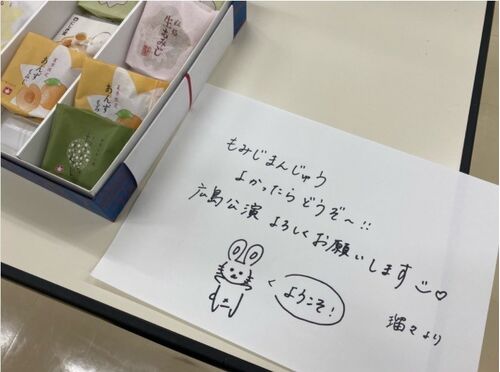 生もみじ
あんずもみじ
もみじまんじゅう
よかったらどうぞ〜!!
広島公演 よろしくお願いします
ようこそ!
より